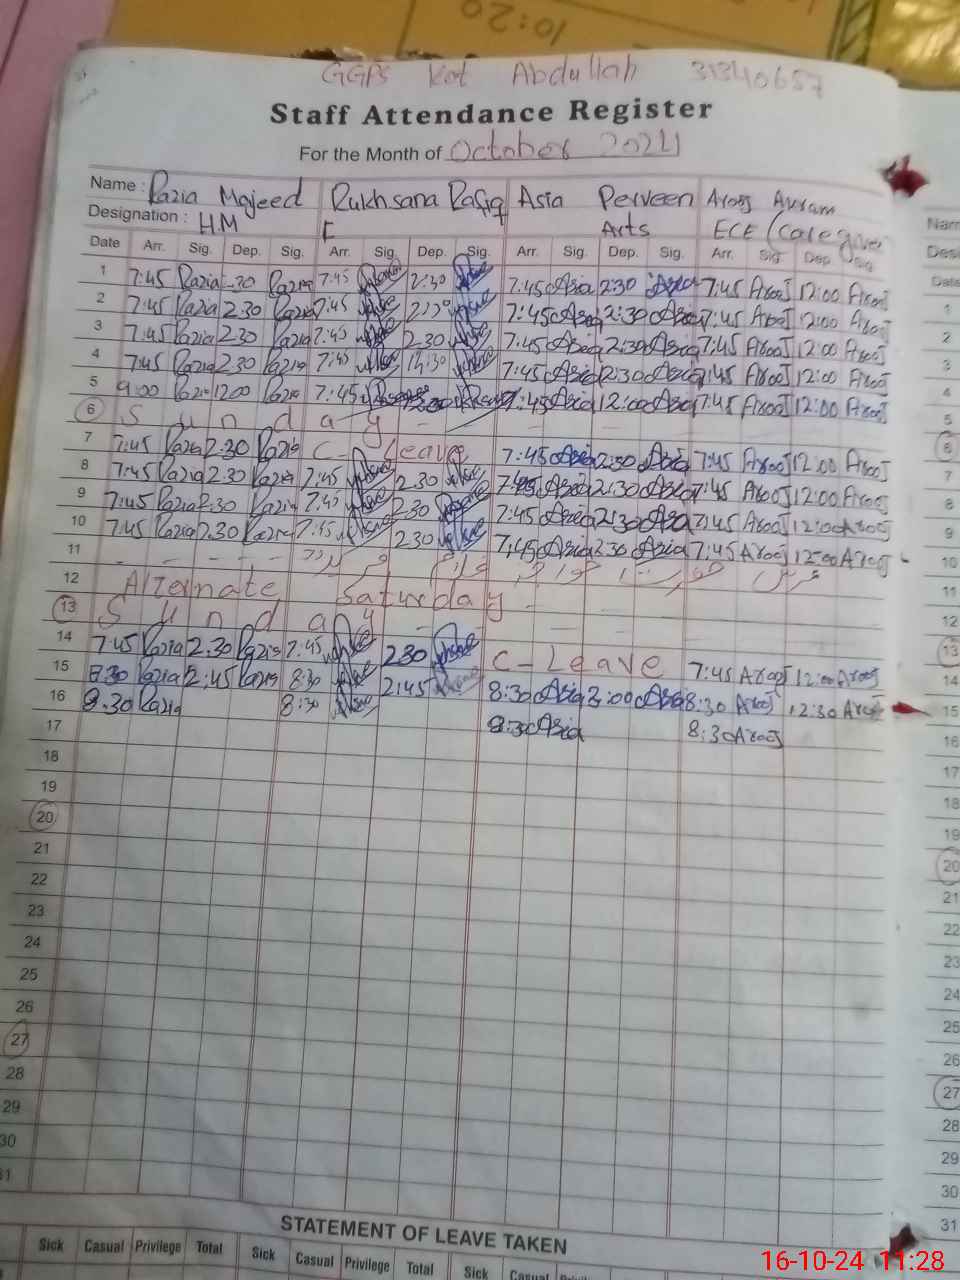 10:20
GGPS Kot Abdullah 31340657
Staff Attendance Register
For the Month of October 2024
Name : Razia Majeed Rukhsana Rafiq Asia Perveen Arooj Akram
Designation : H.M Arts ECE (Caregiver
Date Arr. Sig. Dep. Sig. Arr. Sig. Dep. Sig. Arr. Sig. Dep. Sig. Arr. Sig. Dep. Sig.
1 7:45 Razia 2.30 Razia 7:45 2:30 7:45 Asia 2:30 Asia 7:45 Arooj 12:00 Arooj
2 7:45 Razia 2.30 Razia 7:45 7:45 Asia 2:30 Asia 7:45 Arooj 12:00 Arooj
3 7:45 Razia 2.30 Razia 7:45 2.30 7:45 Asia 2:30 Asia 7:45 Arooj 12:00 Arooj
4 7:45 Razia 2.30 Razia 7:45 12:30 7:45 Asia 2:30 Asia 7:45 Arooj 12:00 Arooj
5 9:00 Razia 12:00 Razia 7:45 7:45 Asia 12:00 Asia 7:45 Arooj 12:00 Arooj
6 S u n d a y
7 7:45 Razia 2.30 Razia C - Leave 7:45 Asia 2:30 Asia 7:45 Arooj 12:00 Arooj
8 7:45 Razia 2.30 Razia 7:45 2.30 7:45 Asia 2:30 Asia 7:45 Arooj 12:00 Arooj
9 7:45 Razia 2.30 Razia 7:45 2.30 7:45 Asia 2:30 Asia 7:45 Arooj 12:00 Arooj
10 7:45 Razia 2.30 Razia 7:45 2.30 7:45 Asia 2:30 Asia 7:45 Arooj 12:00 Arooj
11
12 Alternate Saturday
13 S u n d a y
14 7:45 Razia 2.30 Razia 7:45 2.30 C - Leave 7:45 Arooj 12:00 Arooj
15 8:30 Razia 2:45 Razia 8:30 2:45 8:30 Asia 3:00 Asia 8:30 Arooj 12:30 Arooj
16 8.30 Razia 8:30 8:30 Asia 8:30 Arooj
17
18
19
20
21
22
23
24
25
26
27
28
29
30
31
STATEMENT OF LEAVE TAKEN
Sick Casual Privilege Total Sick Casual Privilege Total Sick Casual
Date
1
2
3
4
5
6
7
8
9
10
11
12
13
14
15
16
17
18
19
20
21
22
23
24
25
26
27
28
29
30
31
16-10-24 11:28